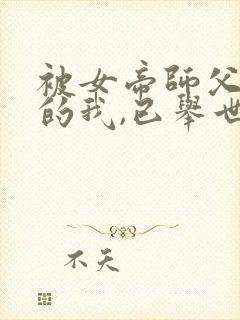 被女帝師父
的我,已舉世
不天